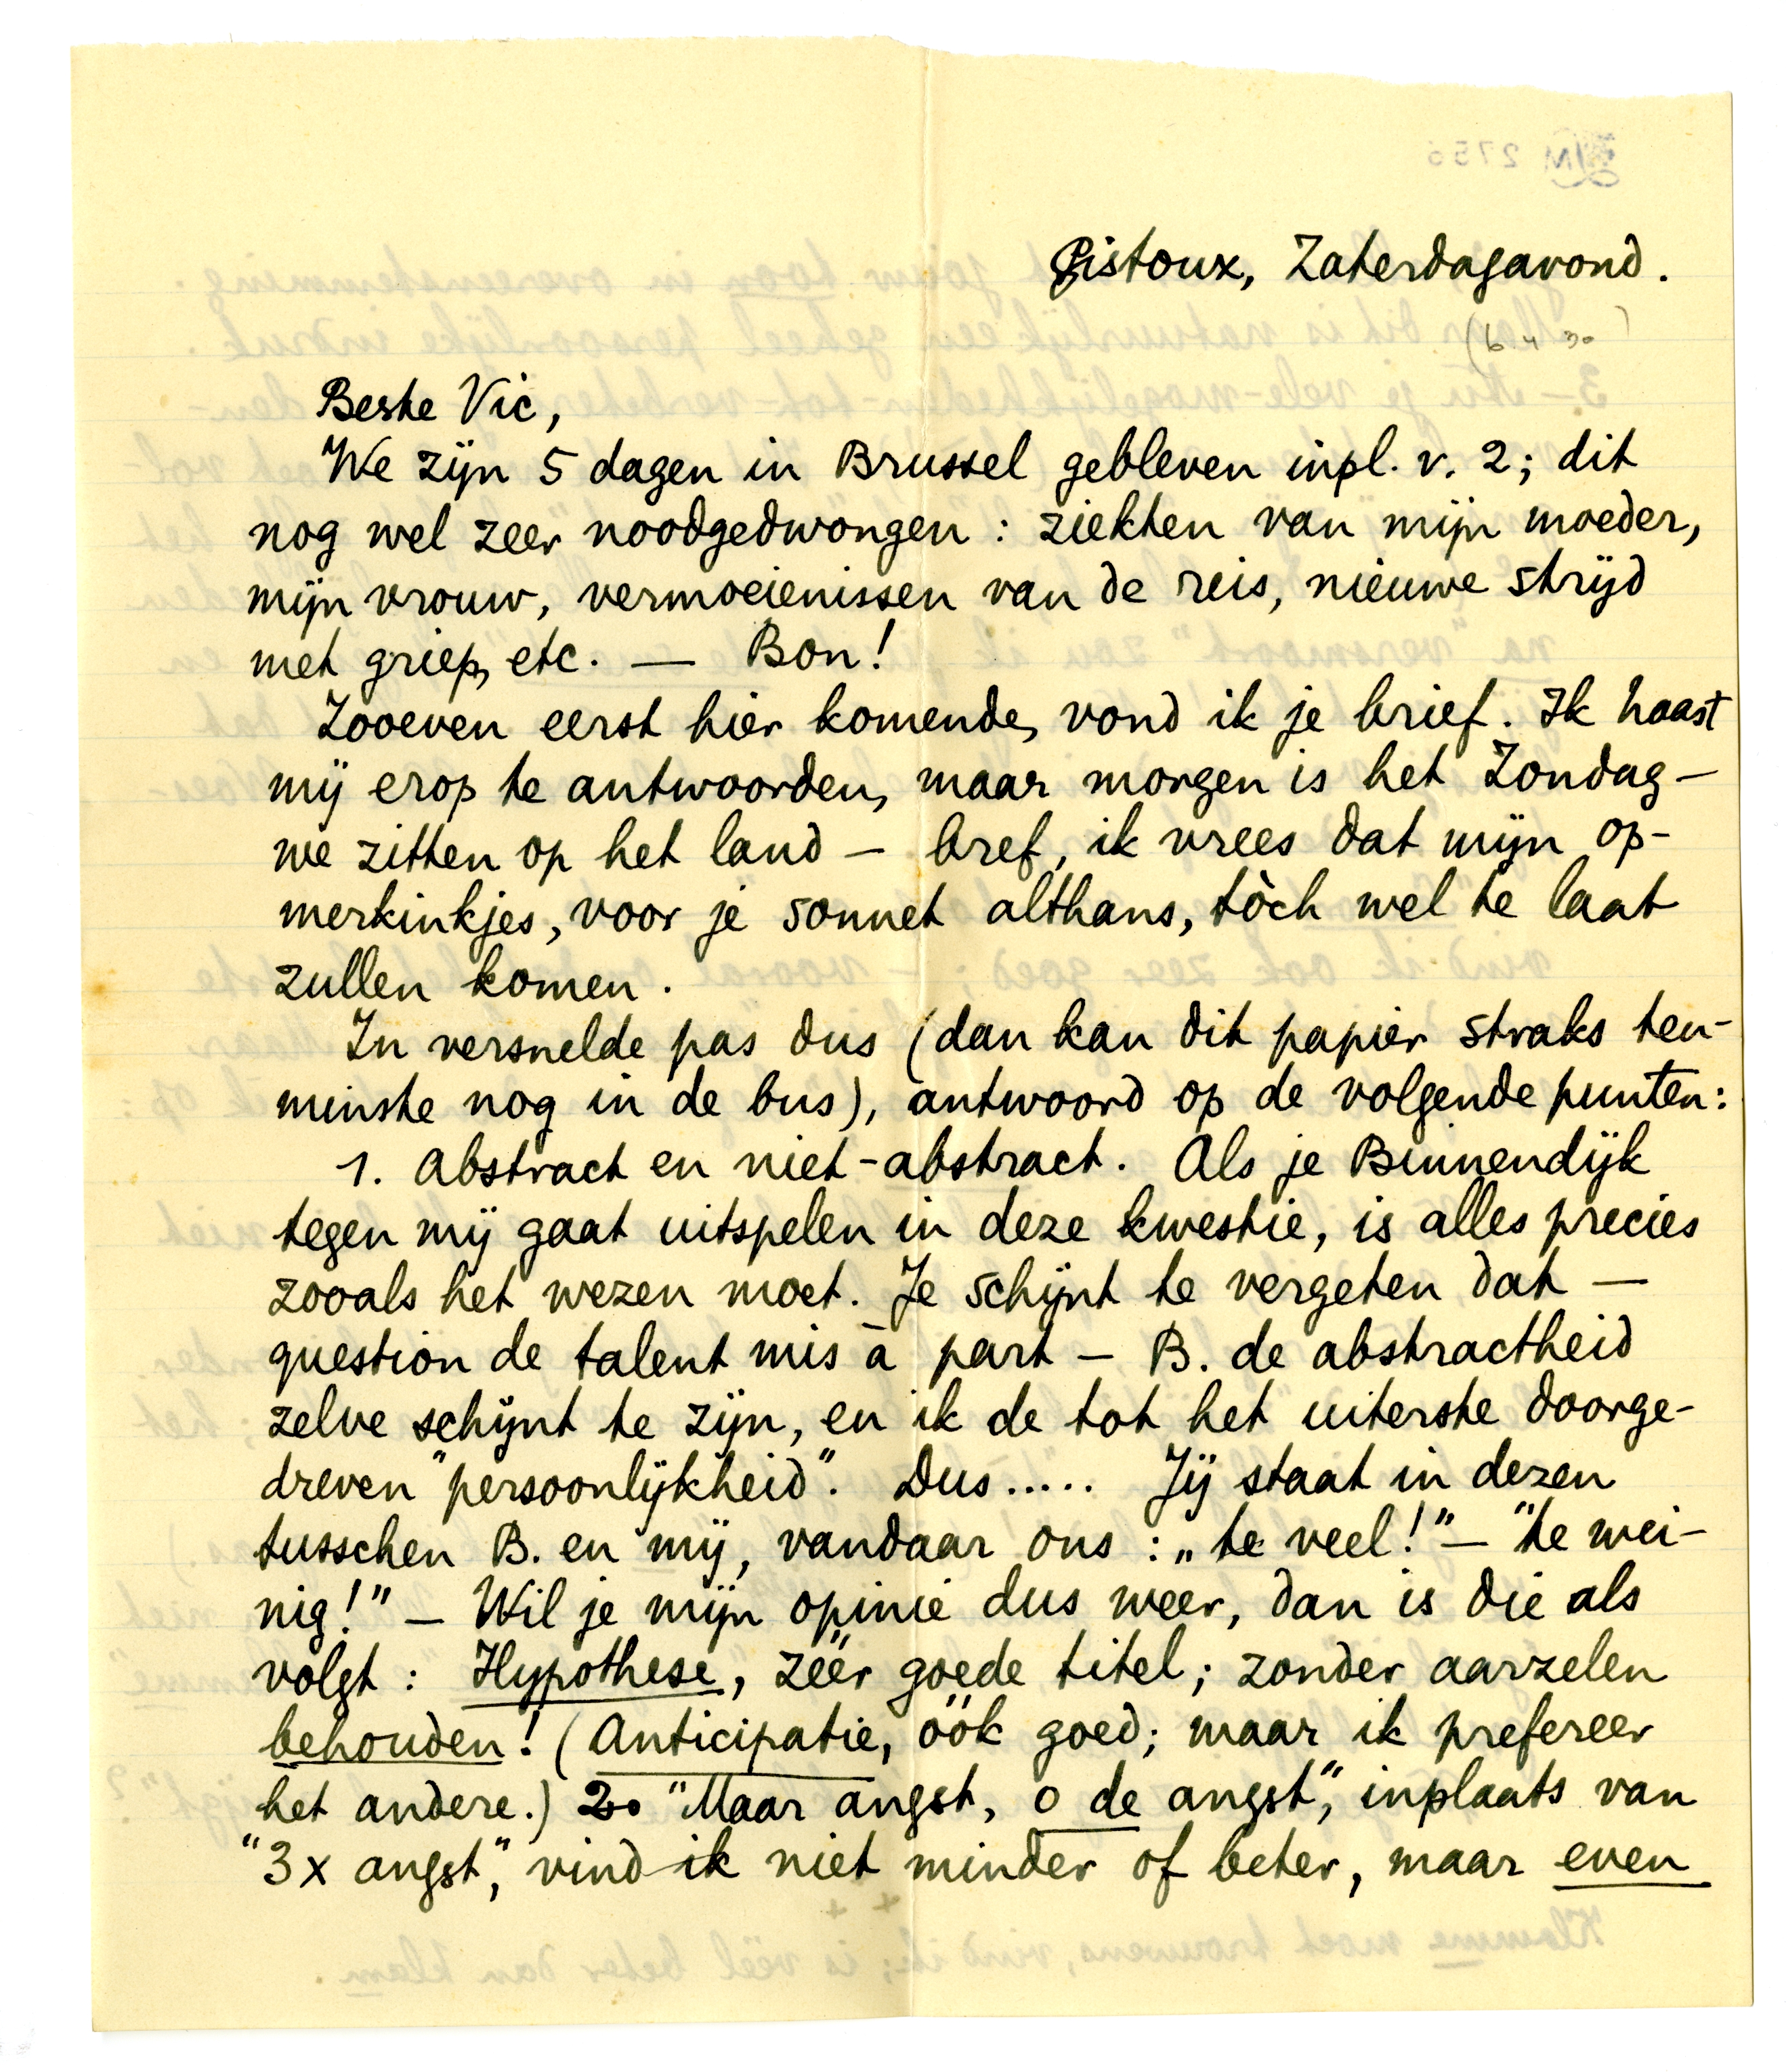 Gistoux, Zaterdagavond.
(6 4 30)
Beste Vic,
We zijn 5 dagen in Brussel gebleven inpl. v. 2; dit
nog wel zeer noodgedwongen: ziekten van mijn moeder,
mijn vrouw, vermoeienissen van de reis, nieuwe strijd
met griep, etc. — Bon!
Zooeven eerst hier komende, vond ik je brief. Ik haast
mij erop te antwoorden, maar morgen is het Zondag —
we zitten op het land — bref, ik vrees dat mijn op-
merkinkjes, voor je sonnet althans, tòch wel te laat
zullen komen.
In versnelde pas dus (dan kan dit papier straks ten-
minste nog in de bus), antwoord op de volgende punten:
1. Abstract en niet-abstract. Als je Binnendijk
tegen mij gaat uitspelen in deze kwestie, is alles precies
zooals het wezen moet. Je schijnt te vergeten dat —
question de talent mis à part — B. de abstractheid
zelve schijnt te zijn, en ik de tot het uiterste doorge-
dreven "persoonlijkheid". Dus..... Jij staat in dezen
tusschen B. en mij, vandaar ons: „te veel!" — "te wei-
nig!" — Wil je mijn opinie dus weer, dan is die als
volgt: Hypothese, zéér goede titel; zonder aarzelen
behouden! (Anticipatie, óók goed; maar ik prefereer
het andere.) 2o "Maar angst, o de angst", inplaats van
"3x angst", vind ik niet minder of beter, maar even